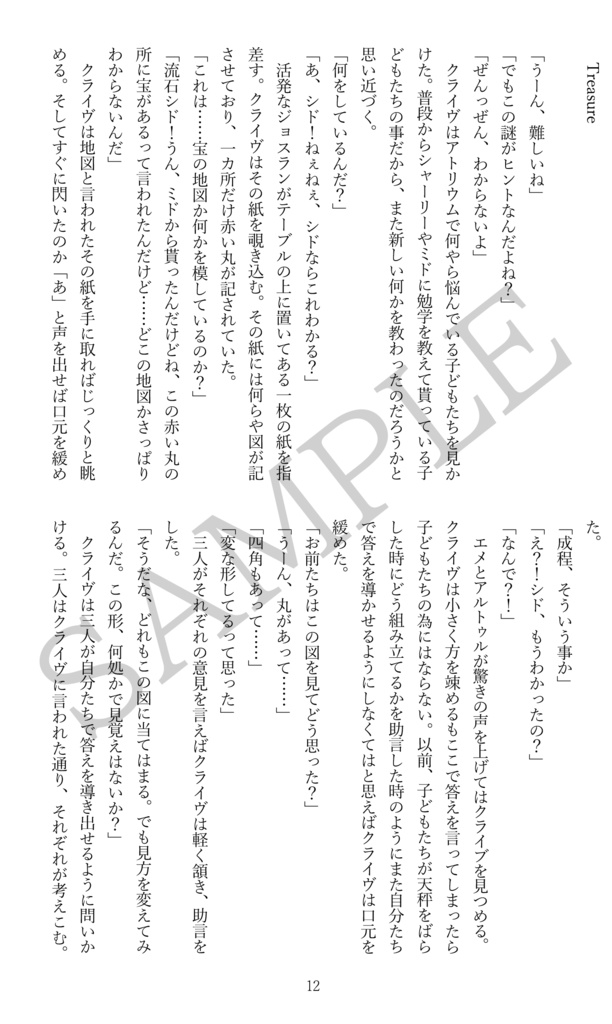 Treasure
「うーん、難しいね」
「でもこの謎がヒントなんだよね？」
「ぜんっぜん、わからないよ」
　クライヴはアトリウムで何やら悩んでいる子どもたちを見か
けた。普段からシャーリーやミドに勉学を教えて貰っている子
どもたちの事だから、また新しい何かを教わったのだろうかと
思い近づく。
「何をしているんだ？」
「あ、シド！ねぇねぇ、シドならこれわかる？」
　活発なジョスランがテーブルの上に置いてある一枚の紙を指
差す。クライヴはその紙を覗き込む。その紙には何らや図が記
させており、一カ所だけ赤い丸が記されていた。
「これは……宝の地図か何かを模しているのか？」
「流石シド！うん、ミドから貰ったんだけどね、この赤い丸の
所に宝があるって言われたんだけど……どこの地図かさっぱり
わからないんだ」
　クライヴは地図と言われたその紙を手に取ればじっくりと眺
める。そしてすぐに閃いたのか「あ」と声を出せば口元を緩め
た。
「成程、そういう事か」
「え？！シド、もうわかったの？」
「なんで？！」
　エメとアルトゥルが驚きの声を上げてはクライブを見つめる。
クライヴは小さく方を竦めるもここで答えを言ってしまったら
子どもたちの為にはならない。以前、子どもたちが天秤をばら
した時にどう組み立てるかを助言した時のようにまた自分たち
で答えを導かせるようにしなくてはと思えばクライヴは口元を
緩めた。
「お前たちはこの図を見てどう思った？」
「うーん、丸があって……」
「四角もあって……」
「変な形してるって思った」
　三人がそれぞれの意見を言えばクライヴは軽く頷き、助言を
した。
「そうだな、どれもこの図に当てはまる。でも見方を変えてみ
るんだ。この形、何処かで見覚えはないか？」
　クライヴは三人が自分たちで答えを導き出せるように問いか
ける。三人はクライヴに言われた通り、それぞれが考えこむ。
12
SAMPLE